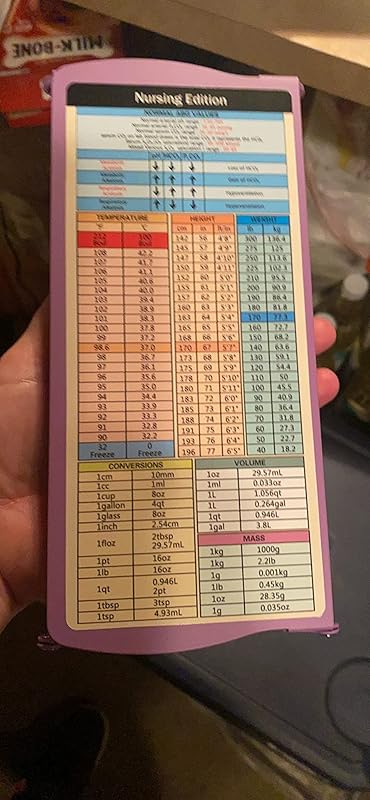 MILK-BONE
Nursing Edition
NORMAL ABG VALUES
TEMPERATURE
°F °C
212 Boil 100 Boil
108 42.2
107 41.7
106 41.1
105 40.6
104 40.0
103 39.4
102 38.9
101 38.3
100 37.8
99 37.2
98.6 37.0
98 36.7
97 36.1
96 35.6
95 35.0
94 34.4
93 33.9
92 33.3
91 32.8
90 32.2
32 Freeze 0 Freeze
HEIGHT
cm in ft/in
142 56 4'8"
145 57 4'9"
147 58 4'10"
150 59 4'11"
152 60 5'0"
155 61 5'1"
157 62 5'2"
160 63 5'3"
163 64 5'4"
165 65 5'5"
168 66 5'6"
170 67 5'7"
173 68 5'8"
175 69 5'9"
178 70 5'10"
180 71 5'11"
183 72 6'0"
185 73 6'1"
188 74 6'2"
191 75 6'3"
193 76 6'4"
196 77 6'5"
WEIGHT
lb kg
300 136.4
275 125
250 113.6
225 102.3
210 95.5
200 90.9
190 86.4
180 81.8
170 77.3
160 72.7
150 68.2
140 63.6
130 59.1
120 54.4
110 50
100 45.5
90 40.9
80 36.4
70 31.8
60 27.3
50 22.7
40 18.2
CONVERSIONS
1cm 10mm
1cc 1ml
1cup 8oz
1gallon 4qt
1glass 8oz
1inch 2.54cm
1floz 2tbsp 29.57mL
1pt 16oz
1lb 16oz
1qt 0.946L 2pt
1tbsp 3tsp
1tsp 4.93mL
VOLUME
1oz 29.57mL
1ml 0.033oz
1L 1.056qt
1L 0.264gal
1qt 0.946L
1gal 3.8L
MASS
1kg 1000g
1kg 2.2lb
1g 0.001kg
1lb 0.45kg
1oz 28.35g
1g 0.035oz